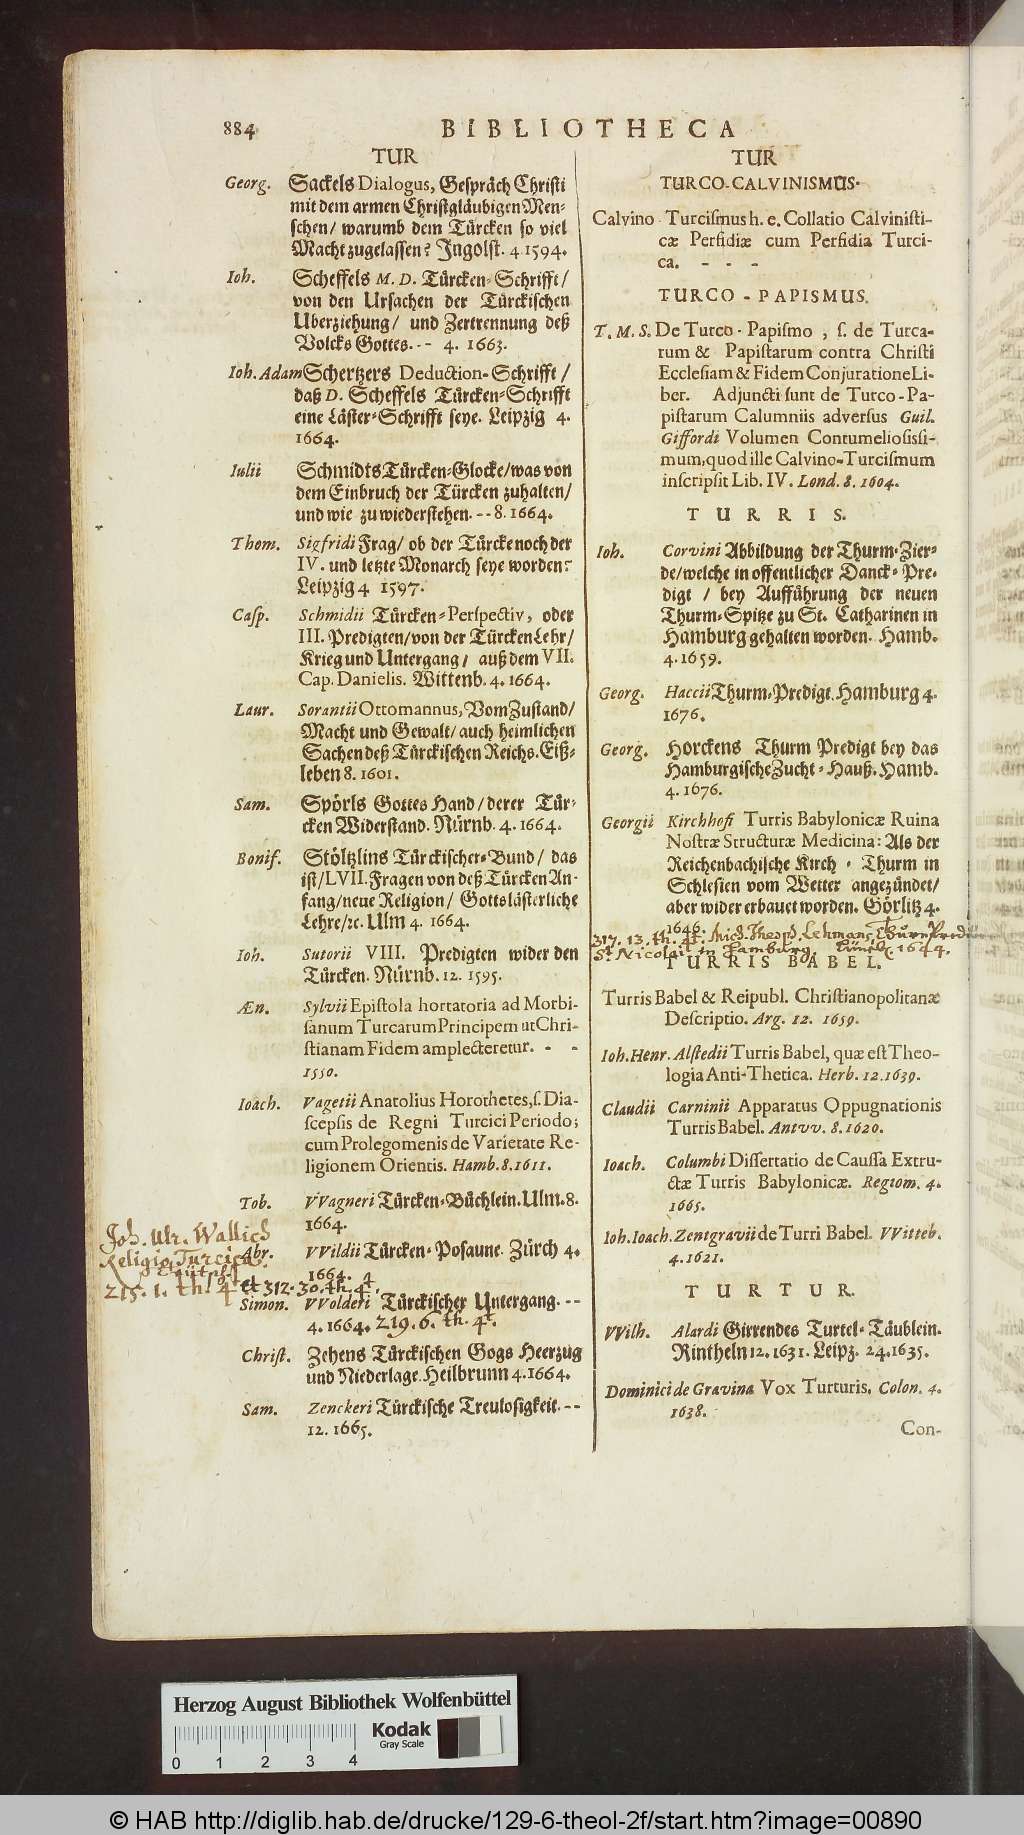 884 BIBLIOTHECA
TUR
Georg. Sackels Dialogus, Gespräch Christi
mit dem armen Christgläubigen Men-
schen/ warumb dem Türcken so viel
Macht zugelassen? Ingolst. 4 1594.
Ioh. Scheffels M. D. Türcken-Schrifft/
von den Ursachen der Türckischen
Uberziehung/ und Zertrennung deß
Volcks Gottes. - - 4. 1663.
Ioh. Adam Schertzers Deduction-Schrifft/
daß D. Scheffels Türcken-Schrifft
eine Läster-Schrifft seye. Leipzig 4.
1664.
Iulii Schmidts Türcken-Glocke/was von
dem Einbruch der Türcken zuhalten/
und wie zu wiederstehen. - - 8. 1664.
Thom. Sigfridi Frag/ ob der Türcke noch der
IV. und letzte Monarch seye worden?
Leipzig 4 1597.
Casp. Schmidii Türcken-Perspectiv, oder
III. Predigten/von der Türcken Lehr/
Krieg und Untergang/ auß dem VII.
Cap. Danielis. Wittenb. 4. 1664.
Laur. Sorantii Ottomannus, Vom Zustand/
Macht und Gewalt/auch heimlichen
Sachen deß Türckischen Reichs. Eiß-
leben 8. 1601.
Sam. Spörls Gottes Hand/derer Tür-
cken Widerstand. Nürnb. 4. 1664.
Bonif. Stöltzlins Türckischer-Bund/ das
ist/LVII. Fragen von deß Türcken An-
fang/neue Religion/ Gottslästerliche
Lehre/ꝛc. Ulm 4. 1664.
Ioh. Sutorii VIII. Predigten wider den
Türcken. Nürnb. 12. 1595.
Æn. Sylvii Epistola hortatoria ad Morbi-
sanum Turcarum Principem ut Chri-
stianam Fidem amplecteretur. - -
1550.
Ioach. Vagetii Anatolius Horothetes, s. Dia-
scepsis de Regni Turcici Periodo;
cum Prolegomenis de Varietate Re-
ligionem Orientis. Hamb. 8. 1611.
Tob. VVagneri Türcken-Büchlein. Ulm. 8.
1664.
Joh. Ulr. Wallich
Religio Turcica
215. 1. th. 4 et 312. 30. th. 4.
Abr. VVildii Türcken-Posaune. Zürch 4.
1664. 4
Simon. VVolderi Türckischer Untergang. - -
4. 1664. 219. 6. th. 4.
Christ. Zehens Türckischen Gogs Heerzug
und Niederlage. Heilbrunn 4. 1664.
Sam. Zenckeri Türckische Treulosigkeit. - -
12. 1665.
TUR
TURCO-CALVINISMUS.
Calvino-Turcismus h. e. Collatio Calvinisti-
cæ Perfidiæ cum Perfidia Turci-
ca. - - -
TURCO-PAPISMUS.
T. M. S. De Turco-Papismo, s. de Turca-
rum & Papistarum contra Christi
Ecclesiam & Fidem Conjuratione Li-
ber. Adjuncti sunt de Turco-Pa-
pistarum Calumniis adversus Guil.
Giffordi Volumen Contumeliosissi-
mum, quod ille Calvino-Turcismum
inscripsit Lib. IV. Lond. 8. 1604.
TURRIS.
Ioh. Corvini Abbildung der Thurm-Zier-
de/welche in offentlicher Danck-Pre-
digt / bey Aufführung der neuen
Thurm-Spitze zu St. Catharinen in
Hamburg gehalten worden. Hamb.
4. 1659.
Georg. Haccii Thurm-Predigt. Hamburg 4.
1676.
Georg. Horckens Thurm Predigt bey das
Hamburgische Zucht-Hauß. Hamb.
4. 1676.
Georgii Kirchhofi Turris Babylonicæ Ruina
Nostræ Structuræ Medicina: Als der
Reichenbachische Kirch-Thurm in
Schlesien vom Wetter angezündet/
aber wider erbauet worden. Görlitz 4.
1646.
317. 13. th. 4. Mich. Theoph. Lehmans Thurn Predi
St. Nicolai in Hamburg. 1644.
TURRIS BABEL.
Turris Babel & Reipubl. Christianopolitanæ
Descriptio. Arg. 12. 1659.
Ioh. Henr. Alstedii Turris Babel, quæ est Theo-
logia Anti-Thetica. Herb. 12. 1639.
Claudii Carninii Apparatus Oppugnationis
Turris Babel. Antvv. 8. 1620.
Ioach. Columbi Dissertatio de Caussa Extru-
ctæ Turris Babylonicæ. Regiom. 4.
1665.
Ioh. Ioach. Zentgravii de Turri Babel. VVitteb.
4. 1621.
TURTUR.
VVilh. Alardi Girrendes Turtel-Täublein.
Rintheln 12. 1631. Leipz. 24. 1635.
Dominici de Gravina Vox Turturis. Colon. 4.
1638.
Con-
Herzog August Bibliothek Wolfenbüttel
Kodak
Gray Scale
0 1 2 3 4
© HAB http://diglib.hab.de/drucke/129-6-theol-2f/start.htm?image=00890